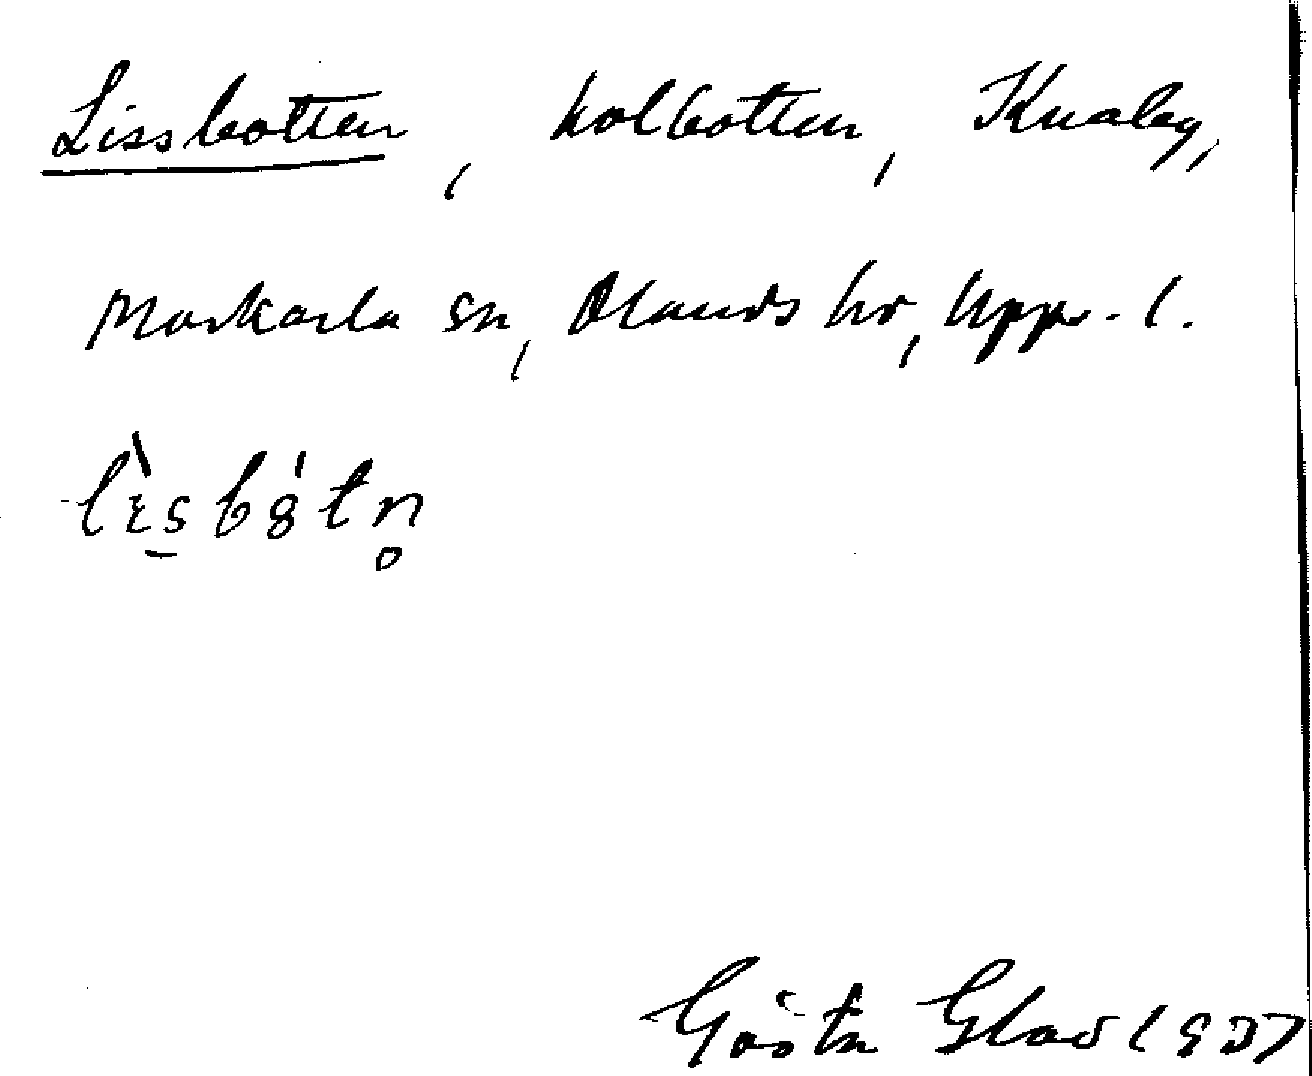 Lissbotten, kolbotten, Knaby,
Morkarla sn, Olands hd, Upps. l.
Gösta Glad 1937